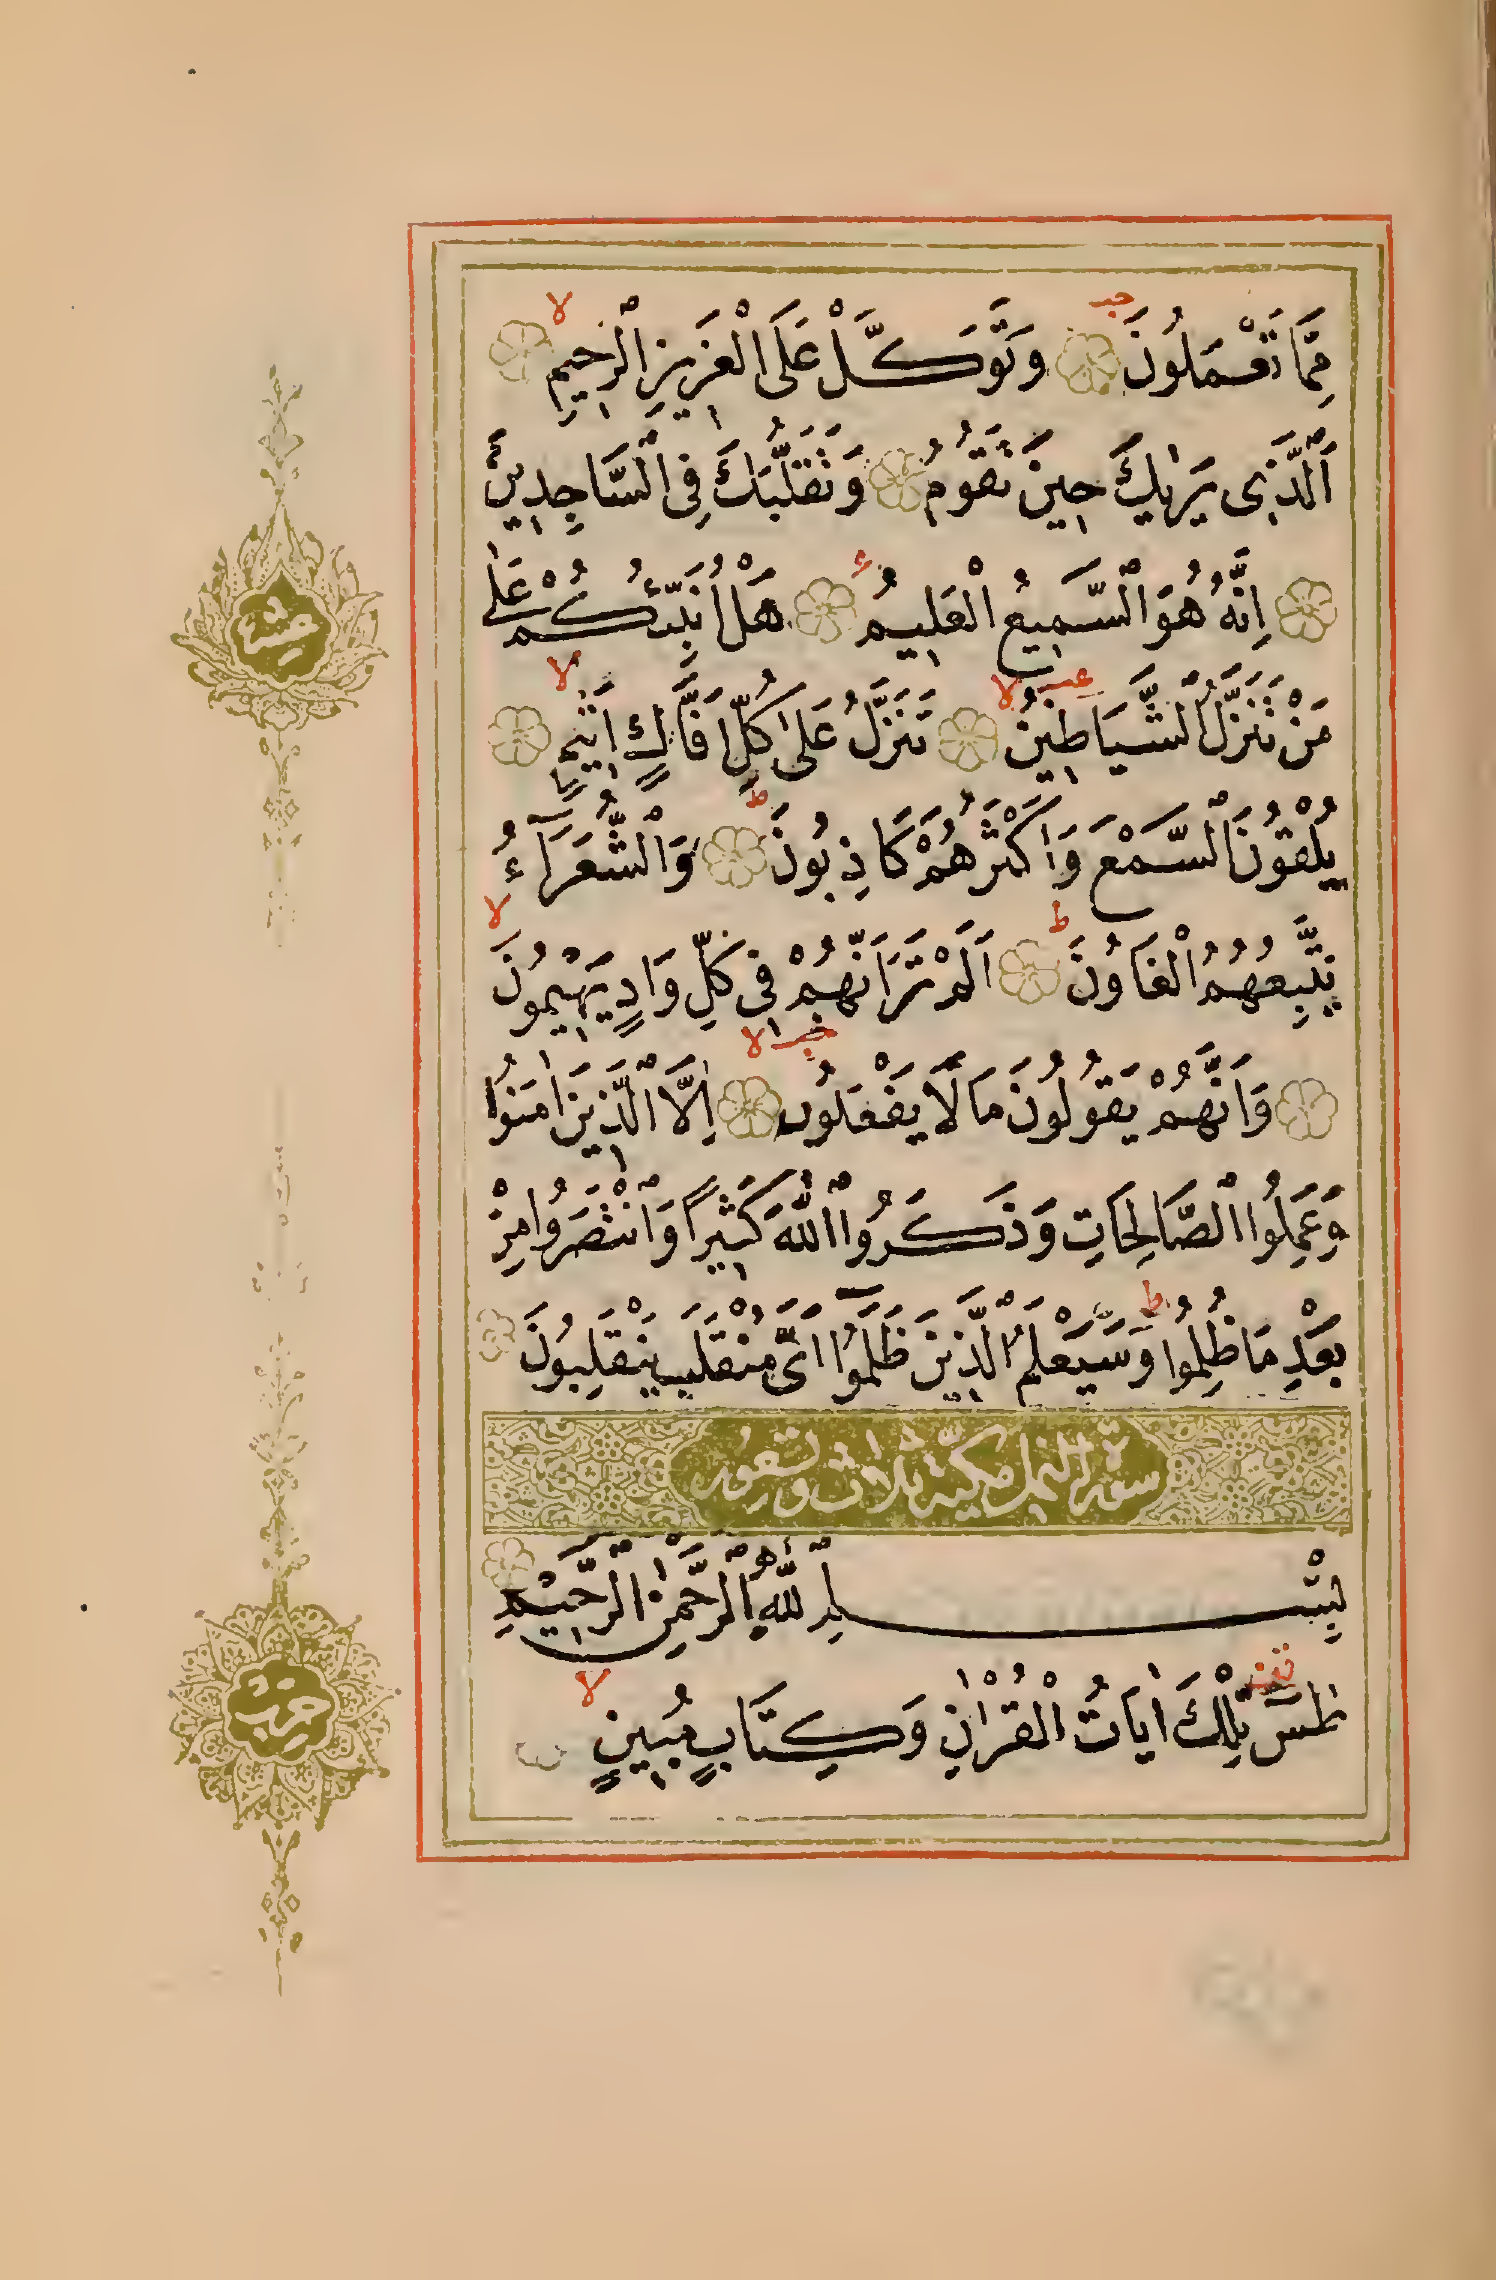 مِمَّا تَعْمَلُونَ وَتَوَكَّلْ عَلَى الْعَزِيزِ الرَّحِيمِ
اَلَّذِي يَرٰيكَ حِينَ تَقُومُ وَتَقَلُّبَكَ فِي السَّاجِدِينَ
اِنَّهُ هُوَ السَّمِيعُ الْعَلِيمُ هَلْ اُنَبِّئُكُمْ عَلٰى
مَنْ تَنَزَّلُ الشَّيَاطِينُ تَنَزَّلُ عَلٰى كُلِّ اَفَّاكٍ اَثِيمٍ
يُلْقُونَ السَّمْعَ وَاَكْثَرُهُمْ كَاذِبُونَ وَالشُّعَرَآءُ
يَتَّبِعُهُمُ الْغَاوُنَ اَلَمْ تَرَ اَنَّهُمْ فِي كُلِّ وَادٍ يَهِيمُونَ
وَاَنَّهُمْ يَقُولُونَ مَا لَا يَفْعَلُونَ اِلَّا الَّذِينَ اٰمَنُوا
وَعَمِلُوا الصَّالِحَاتِ وَذَكَرُوا اللّٰهَ كَثِيرًا وَانْتَصَرُوا مِنْ
بَعْدِ مَا ظُلِمُوا وَسَيَعْلَمُ الَّذِينَ ظَلَمُوٓا اَيَّ مُنْقَلَبٍ يَنْقَلِبُونَ
سورة النمل مكية ثلاث وتسعون
بِسْمِ اللّٰهِ الرَّحْمٰنِ الرَّحِيمِ
طٰسٓ تِلْكَ اٰيَاتُ الْقُرْاٰنِ وَكِتَابٍ مُبِينٍ